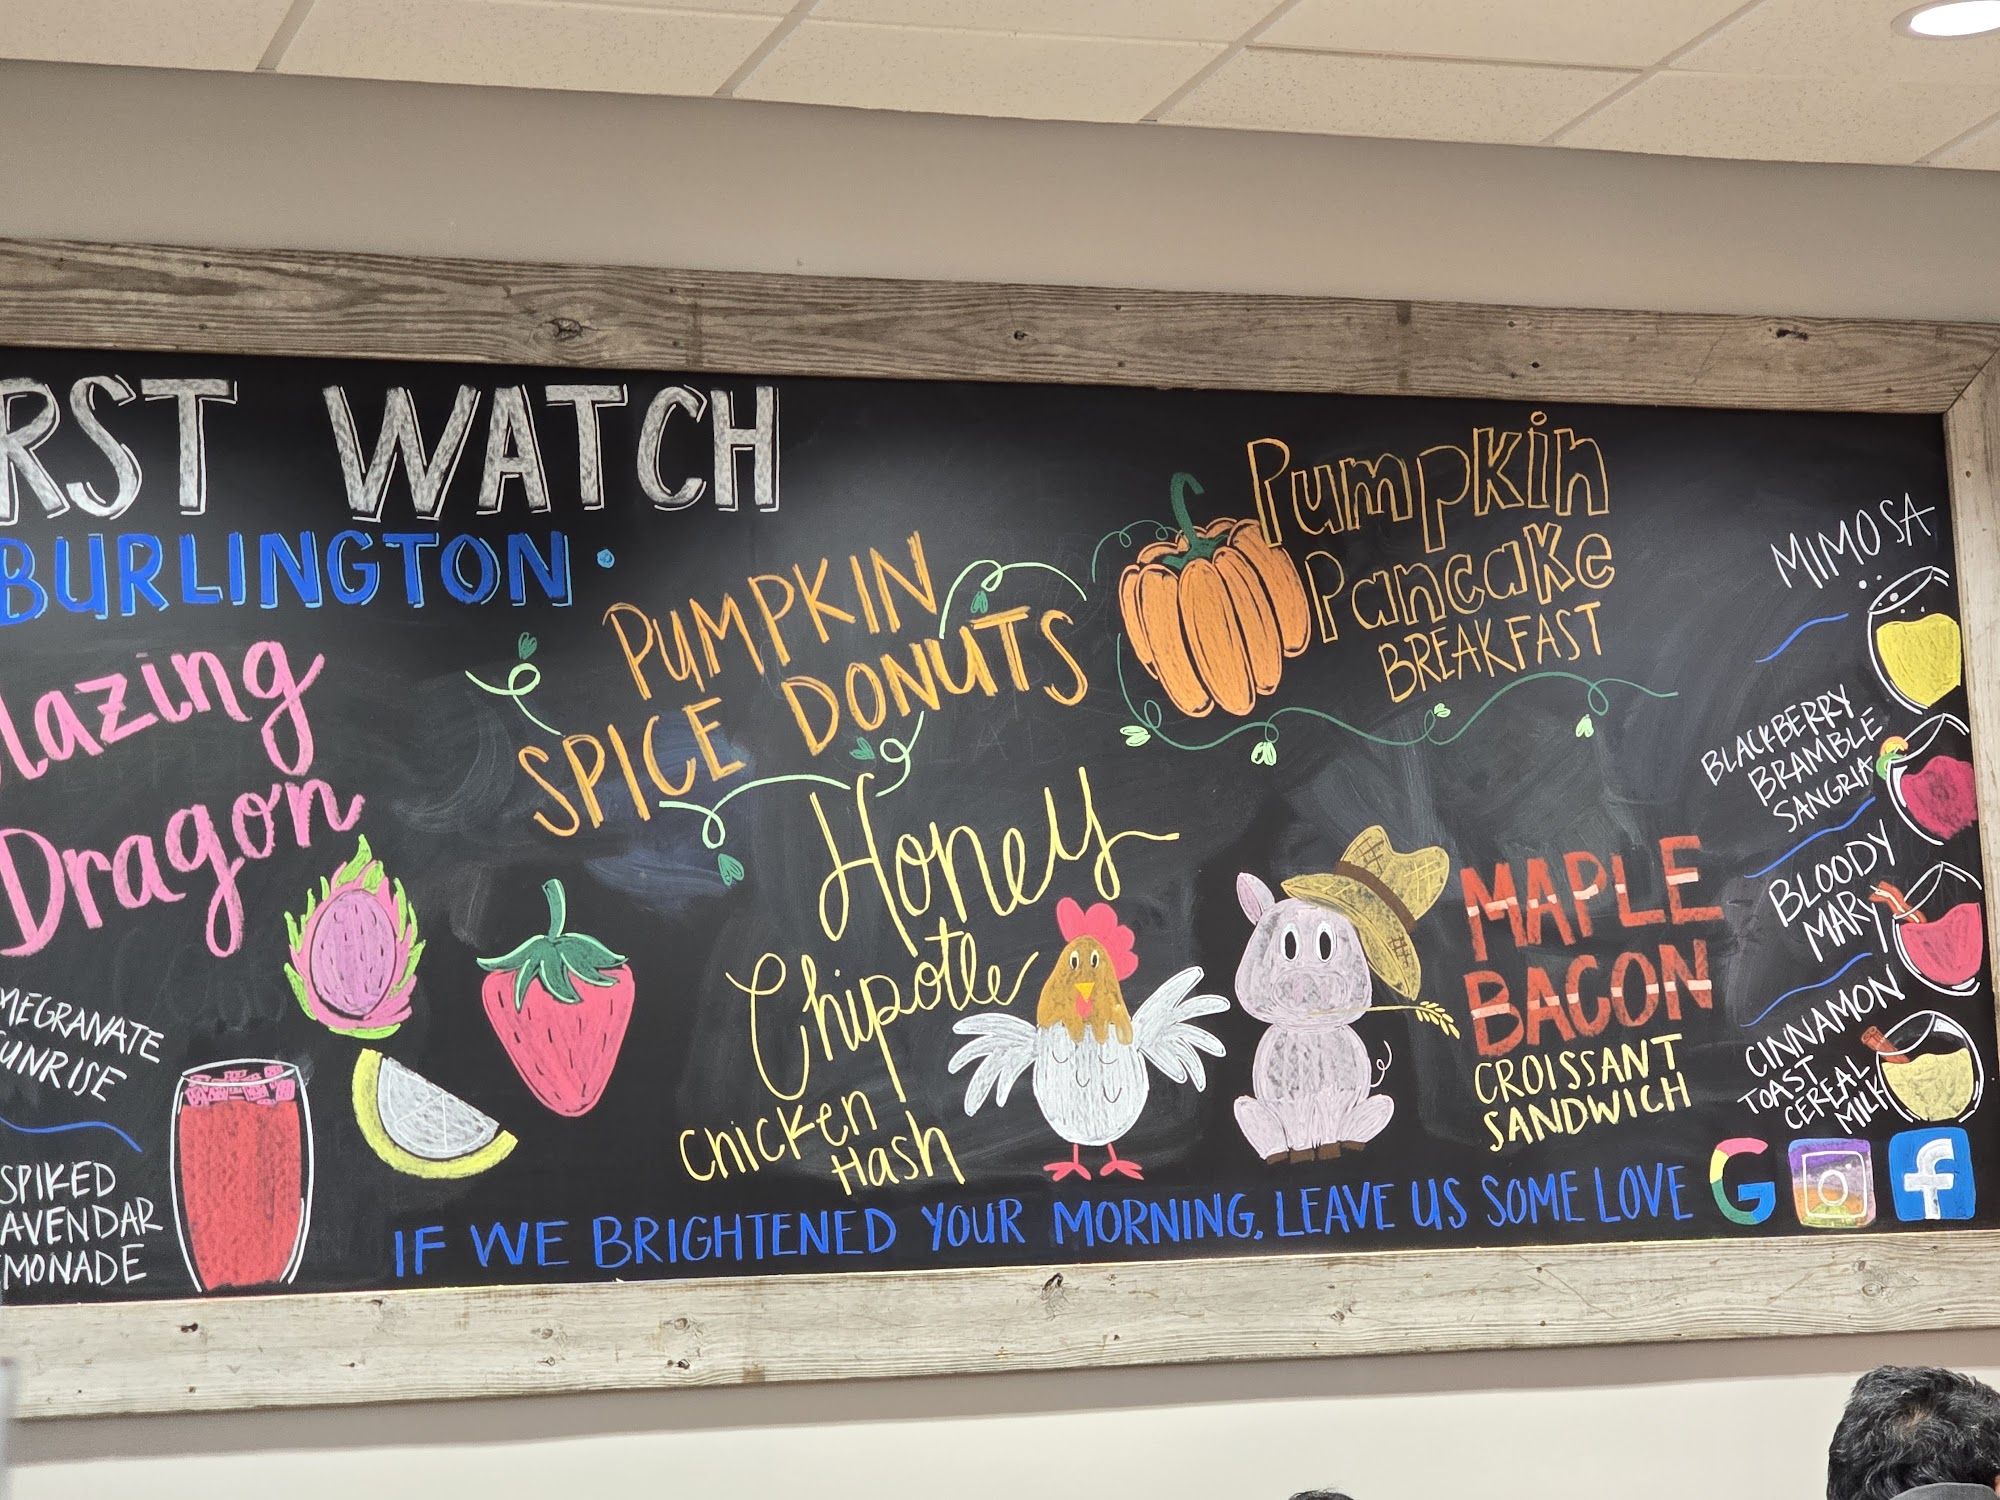 RST WATCH
BURLINGTON •
lazing
Dragon
MEGRANATE
UNRISE
SPIKED
AVENDAR
MONADE
PUMPKIN
SPICE DONUTS
Pumpkin
Pancake
BREAKFAST
Honey
Chipotle
Chicken
Hash
MAPLE
BACON
CROISSANT
SANDWICH
MIMOSA
BLACKBERRY
BRAMBLE
SANGRIA
BLOODY
MARY
CINNAMON
TOAST
CEREAL
MILK
IF WE BRIGHTENED YOUR MORNING, LEAVE US SOME LOVE G f